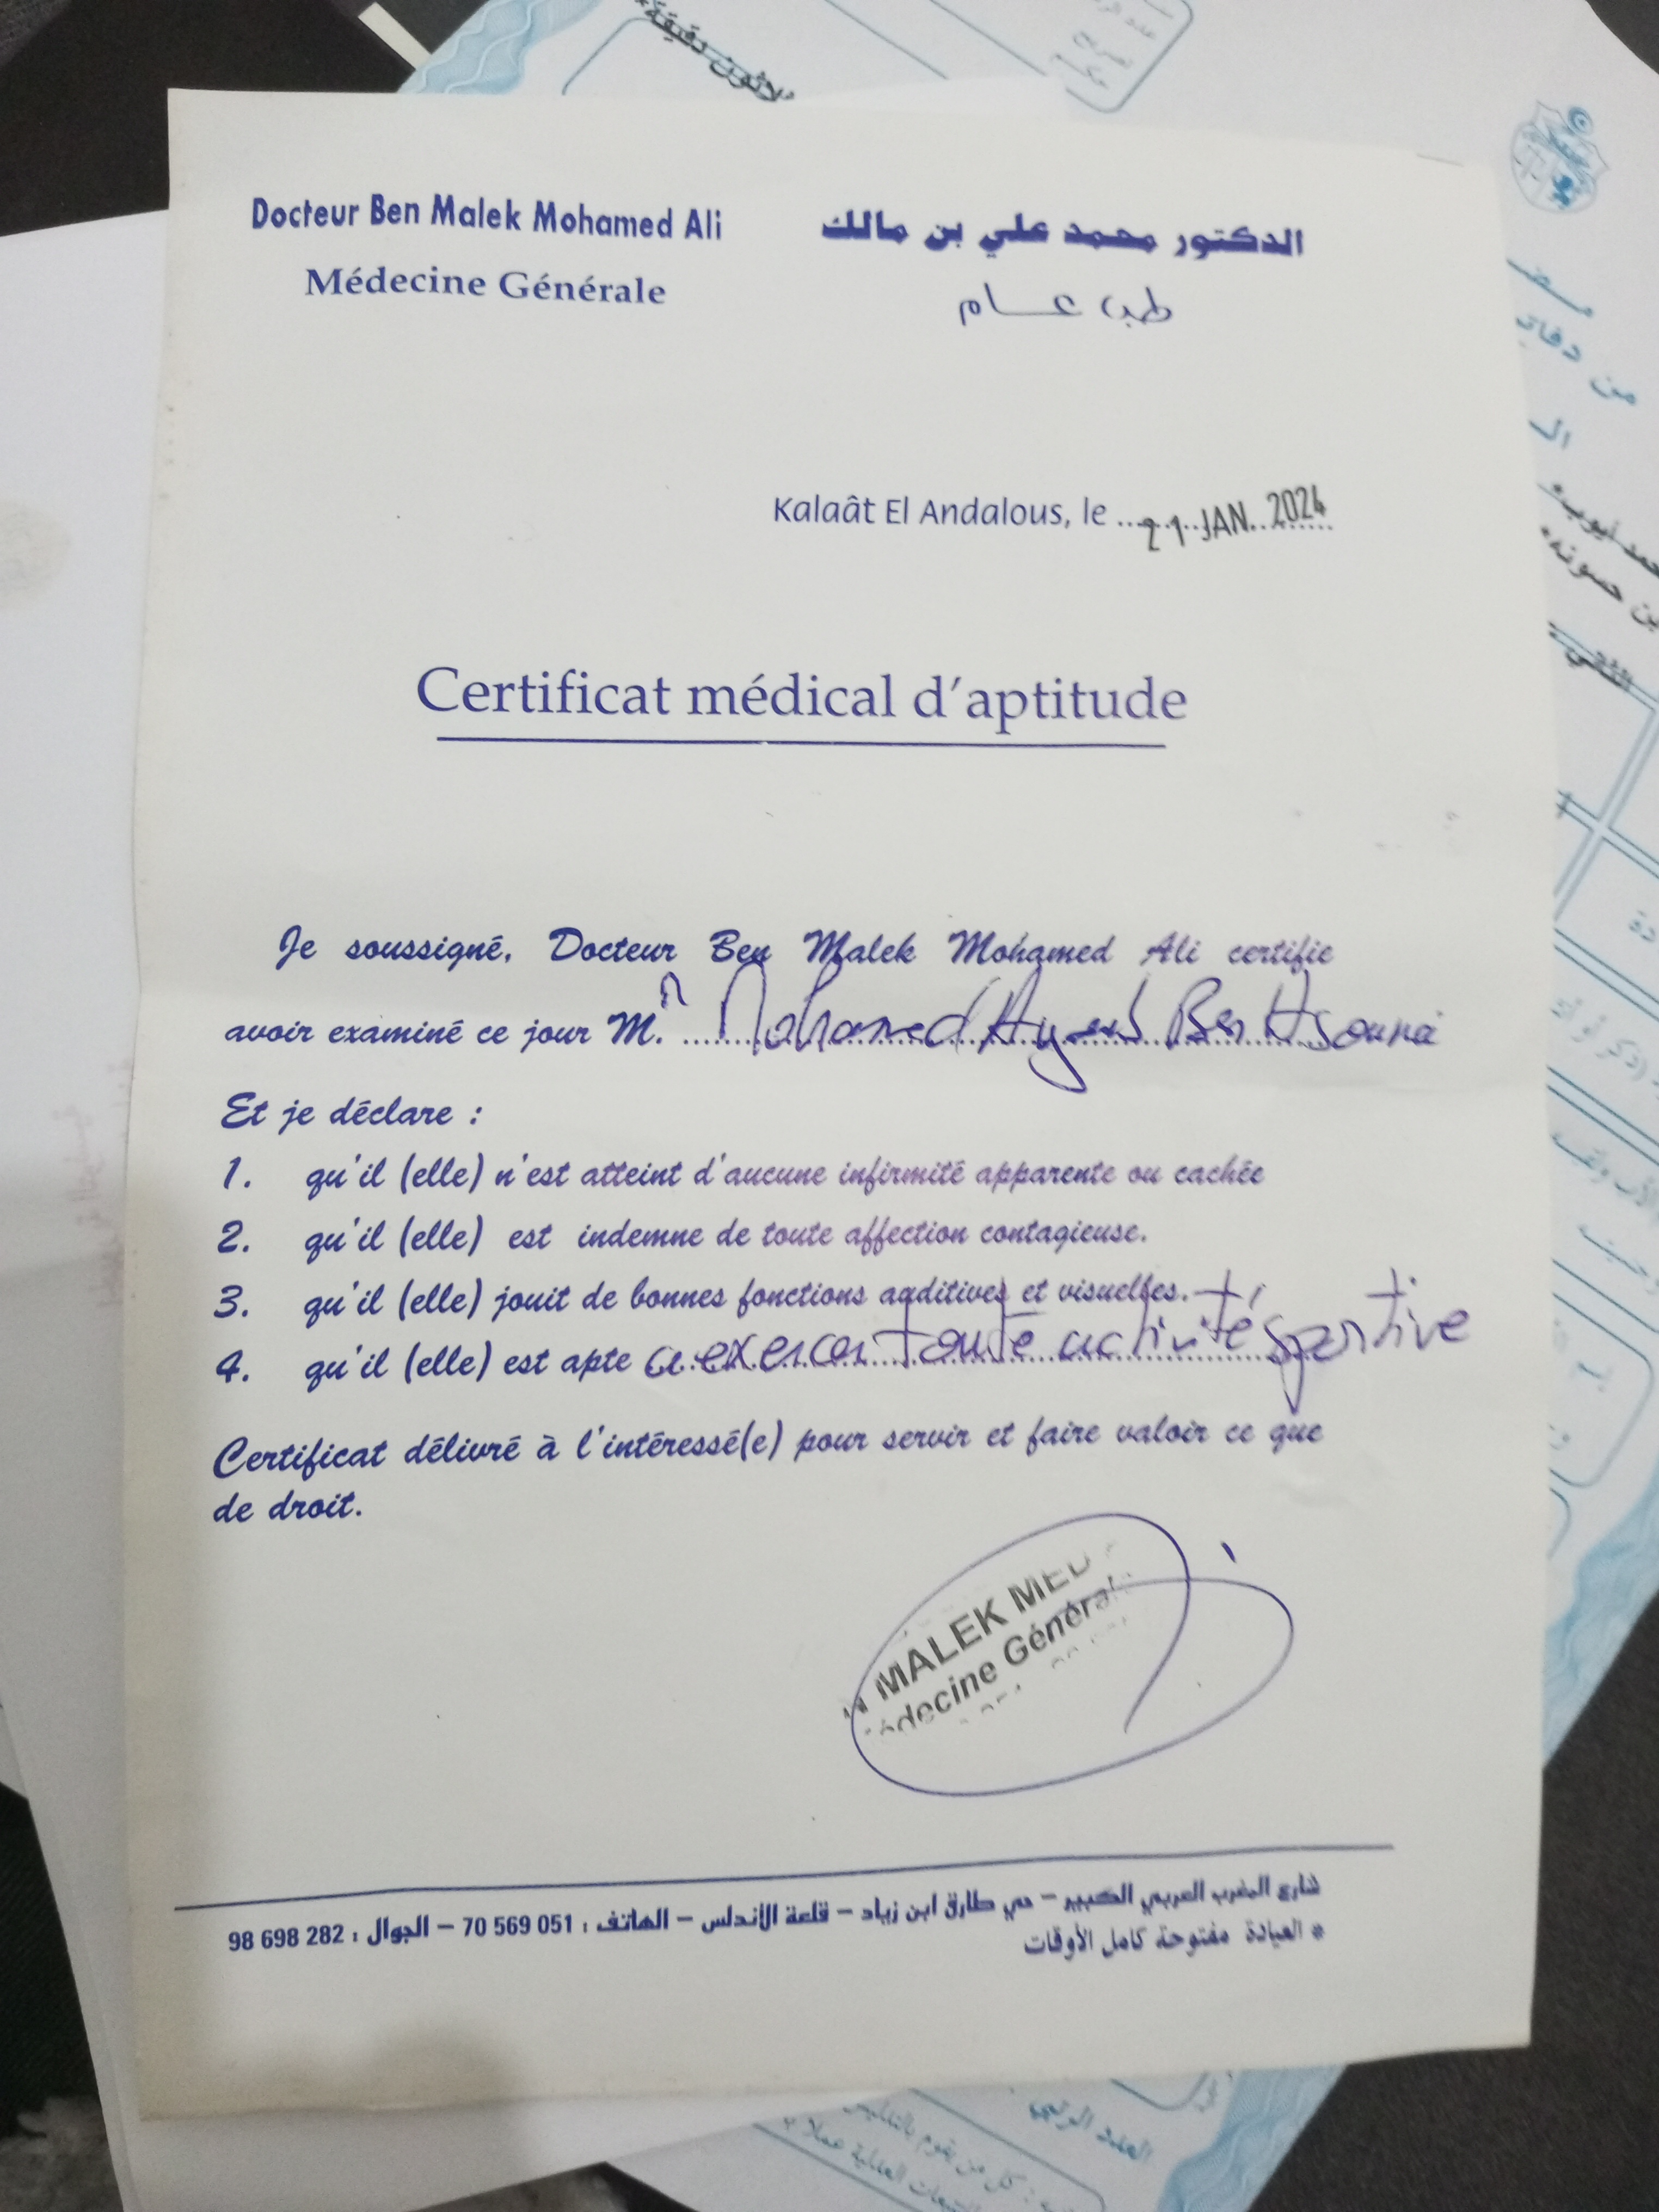 Docteur Ben Malek Mohamed Ali
الدكتور محمد علي بن مالك
Médecine Générale
طب عـــام
Kalaât El Andalous, le ... 21 JAN. 2024
Certificat médical d'aptitude
Je soussigné, Docteur Ben Malek Mohamed Ali certifie
avoir examiné ce jour M. Mohamed Ayoub Ben Hsouna
Et je déclare :
1. qu'il (elle) n'est atteint d'aucune infirmité apparente ou cachée
2. qu'il (elle) est indemne de toute affection contagieuse.
3. qu'il (elle) jouit de bonnes fonctions auditives et visuelles.
4. qu'il (elle) est apte a exercer toute activité sportive
Certificat délivré à l'intéressé(e) pour servir et faire valoir ce que
de droit.
MALEK MED
Médecine Générale
شارع المغرب العربي الكبير – حي طارق ابن زياد – قلعة الأندلس – الهاتف : 70 569 051 – الجوال : 98 698 282
* العيادة مفتوحة كامل الأوقات
ثلاثون دقيقة
من دفاتر
بن حسونه
العدد الرتبي